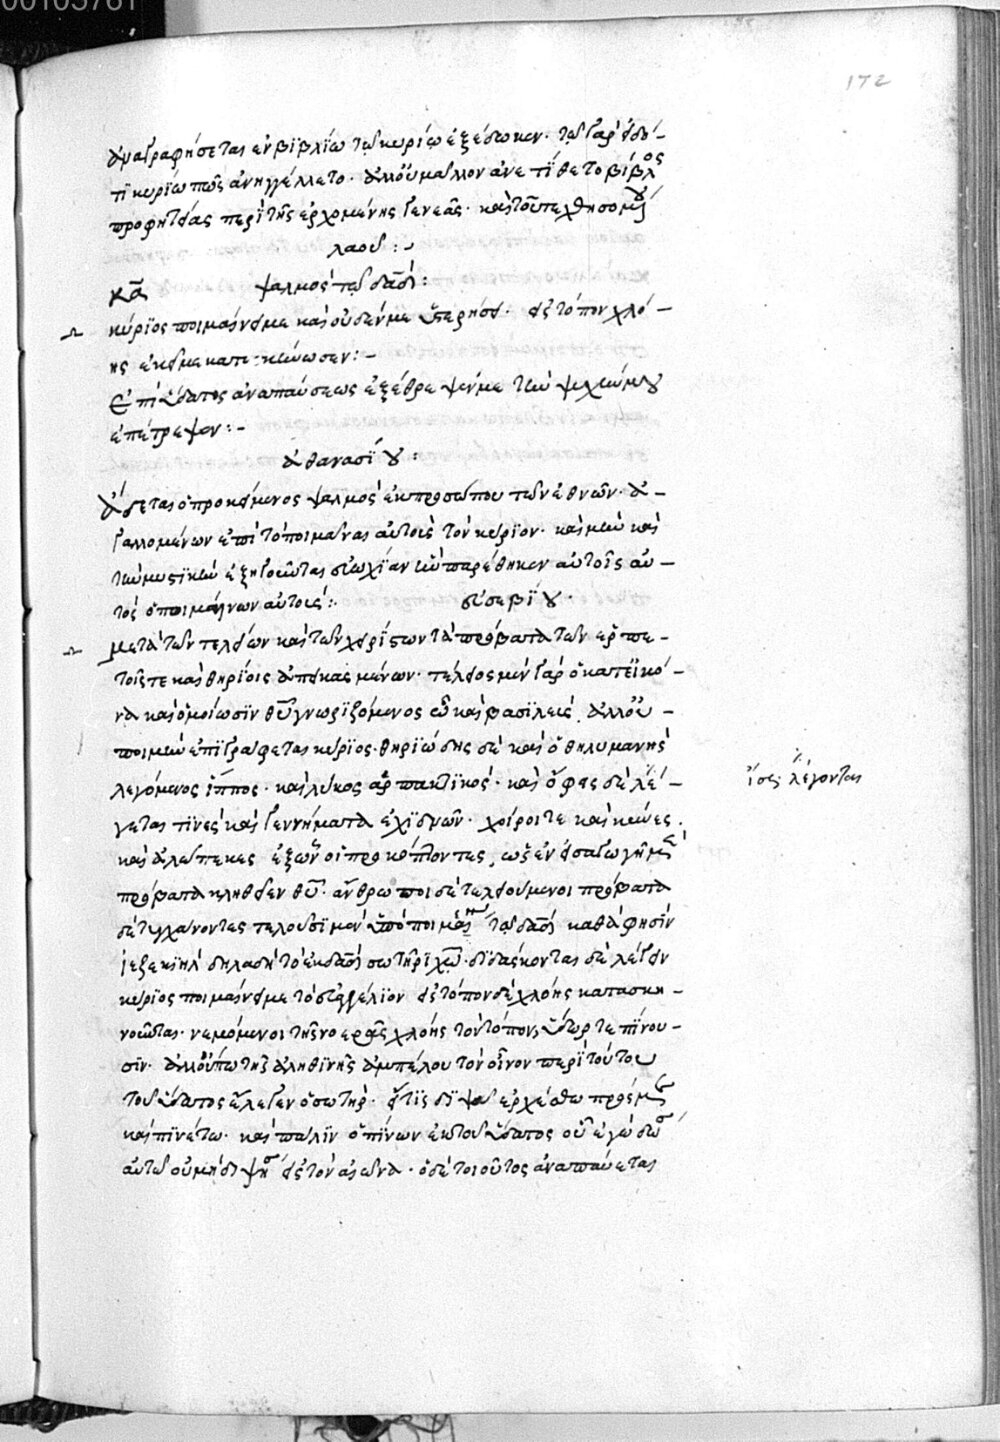 00105761
172
ἀναγραφήσεται ἐν βιβλίω τῶ κυρίω ἐξέδωκεν· τῶ γὰρ εἰδό-
τι κυρίω πῶς ἀνηγγέλλετο· ἀλλ' οὖ μαλλον ἀνετίθετο βίβλος
προφητείας περὶ τῆς ἐρχομένης γενεᾶς· καὶ τοῦ τεχθησομένου
λαοῦ :-
κβ ψαλμὸς τῶ δαδ :
κύριος ποιμαίνει με καὶ οὐδέν με ὑστερήσει· εἰς τόπον χλό-
ης ἐκεῖ με κατεσκήνωσεν :-
ἐπὶ ὕδατος ἀναπαύσεως ἐξέθρεψέν με τὴν ψυχήν μου
ἐπέστρεψεν :-
ἀθανασίου :
ἄδεται ὁ προκείμενος ψαλμὸς ἐκ προσώπου τῶν ἐθνῶν· ἀ-
γαλλομένων ἐπὶ τὸ ποιμαίνειν αὐτοὺς τὸν κύριον· καὶ μὴν καὶ
τὴν μυστικὴν ἐξηγοῦνται εὐωχίαν ἣν παρέθηκεν αὐτοῖς αὐ-
τὸς ὁ ποιμαίνων αὐτούς :· εὐσεβίου·
μετὰ τῶν τελείων καὶ τῶν χωρὶς τῶν τὰ πρόβατα τῶν ἑρπε-
τοῖς τε καὶ θηρίοις ἀπεικασμένων· τέλειος μὲν γὰρ ὁ κατ' εἰκό-
να καὶ ὁμοίωσιν θυ γνωριζόμενος οὗ καὶ βασιλεὺς ἀλλ' οὐ
ποιμὴν ἐπιγράφεται κύριος· θηριώδης δὲ καὶ ὁ θηλυμανὴς
λεγόμενος ἵππος· καὶ λύκος ἁρπακτικός· καὶ ὄφεις δὲ λέ-
γεται τινὲς καὶ γεννήματα ἐχιδνῶν· χοῖροι τε καὶ κύνες·
ἴσως λέγονται
καὶ ἀλώπεκες ἐξ ὧν οἱ προκόπτοντες, ὡς ἐν εἰσαγωγῆ μὲν
πρόβατα κληθεῖεν θυ· ἄνθρωποι δὲ τελειούμενοι πρόβατα
δὲ τυγχάνοντες τελοῦσι μὲν ὑπὸ ποιμένι τῶ δαδ καθά φησιν
ἰεζεκιὴλ δηλαδὴ τὸ ἐκ δαδ σωτῆρι χω· διδάσκονται δὲ λέγειν
κύριος ποιμαίνει με τὸ εὐαγγέλιον εἰς τόπον δὲ χλόης κατασκη-
νοῦνται· νεμόμενοι τῆς νοερᾶς χλόης τὸν τόπον, ὕδωρ τε πίνου-
σιν· ἀλλ' οὔπω τῆς ἀληθινῆς ἀμπέλου τὸν οἶνον περὶ τούτου
τοῦ ὕδατος ἔλεγεν ὁ σωτήρ· εἴ τις διψᾶ ἐρχέσθω πρός με
καὶ πινέτω· καὶ πάλιν ὁ πίνων ἐκ τοῦ ὕδατος οὗ ἐγὼ δώσω
αὐτῶ οὐ μὴ διψήση εἰς τὸν αἰῶνα· ὁ δὲ τοιοῦτος ἀναπαύεται